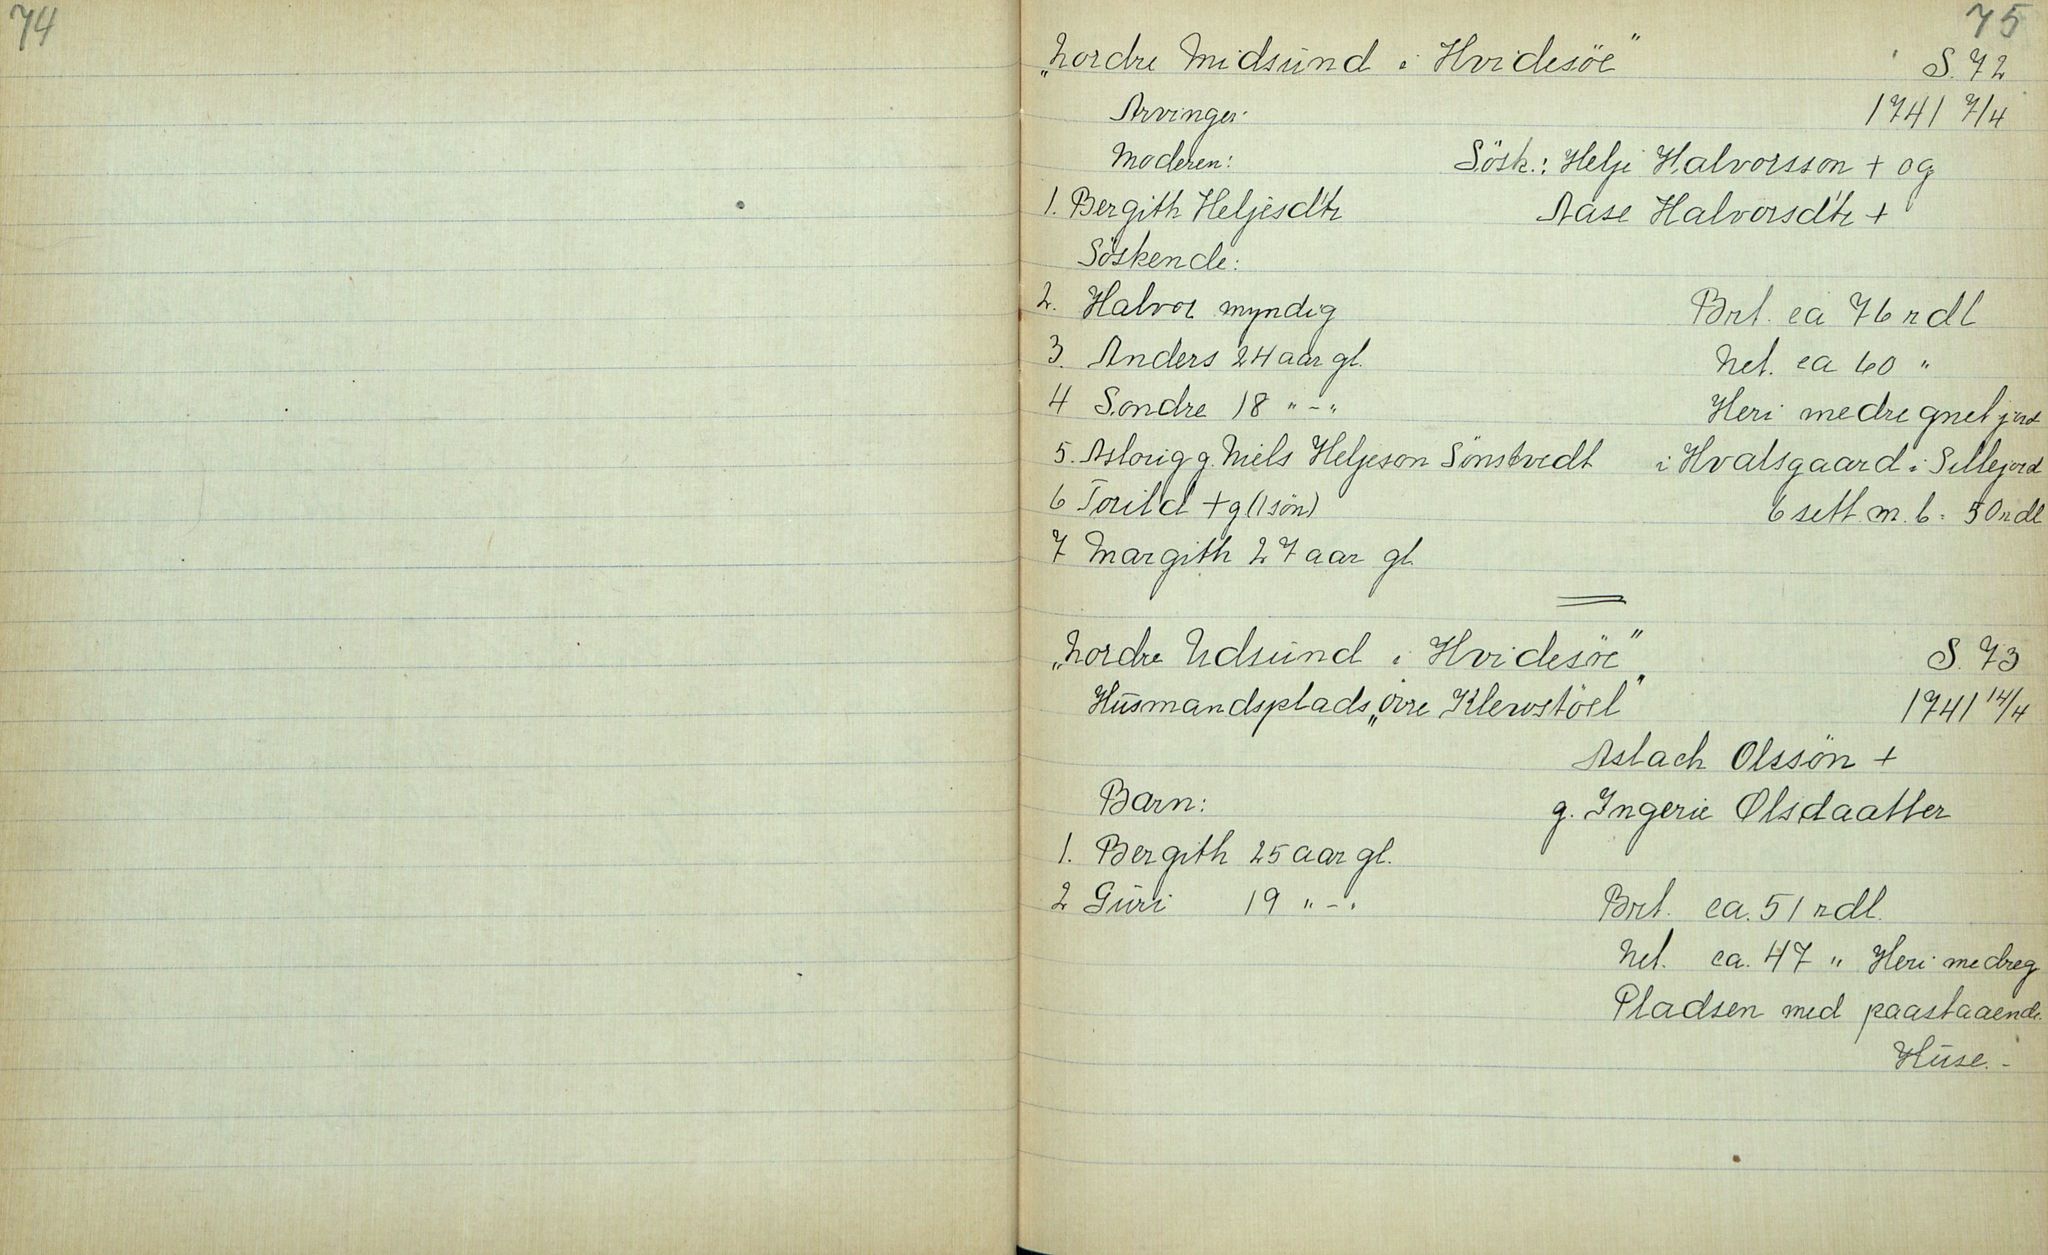 74
75
„Nordre Midsund i Hvidesöe" S. 72
Arvinger: 1741 7/4
Moderen: Sösk.: Helje Halvorsson + og
1. Bergith Heljesd'tr Aase Halvorsd'tr +
Söskende:
2. Halvor myndig Brt. ca 76 rdl
3. Anders 24 aar gl. Net. ca 60 "
4 Sondre 18 " - " Heri medregnet jord
5. Aslovig g. Niels Heljeson Sönstvedt i Hvalsgaard i Sillejord
6 Torild + g (1 sön) 6 sett. m. b. 50 rdl
7 Margith 27 aar gl.
„Nordre Udsund i Hvidesöe" S. 73
Husmandsplads „Övre Klewstöel" 1741 14/4
Aslach Olssön +
Barn: g. Ingerie Olsdaatter
1. Bergith 25 aar gl.
2 Guri 19 " - " Brt. ca. 51 rdl.
Net. ca. 47 " Heri medreg
Pladsen med paastaaende
Huse. -